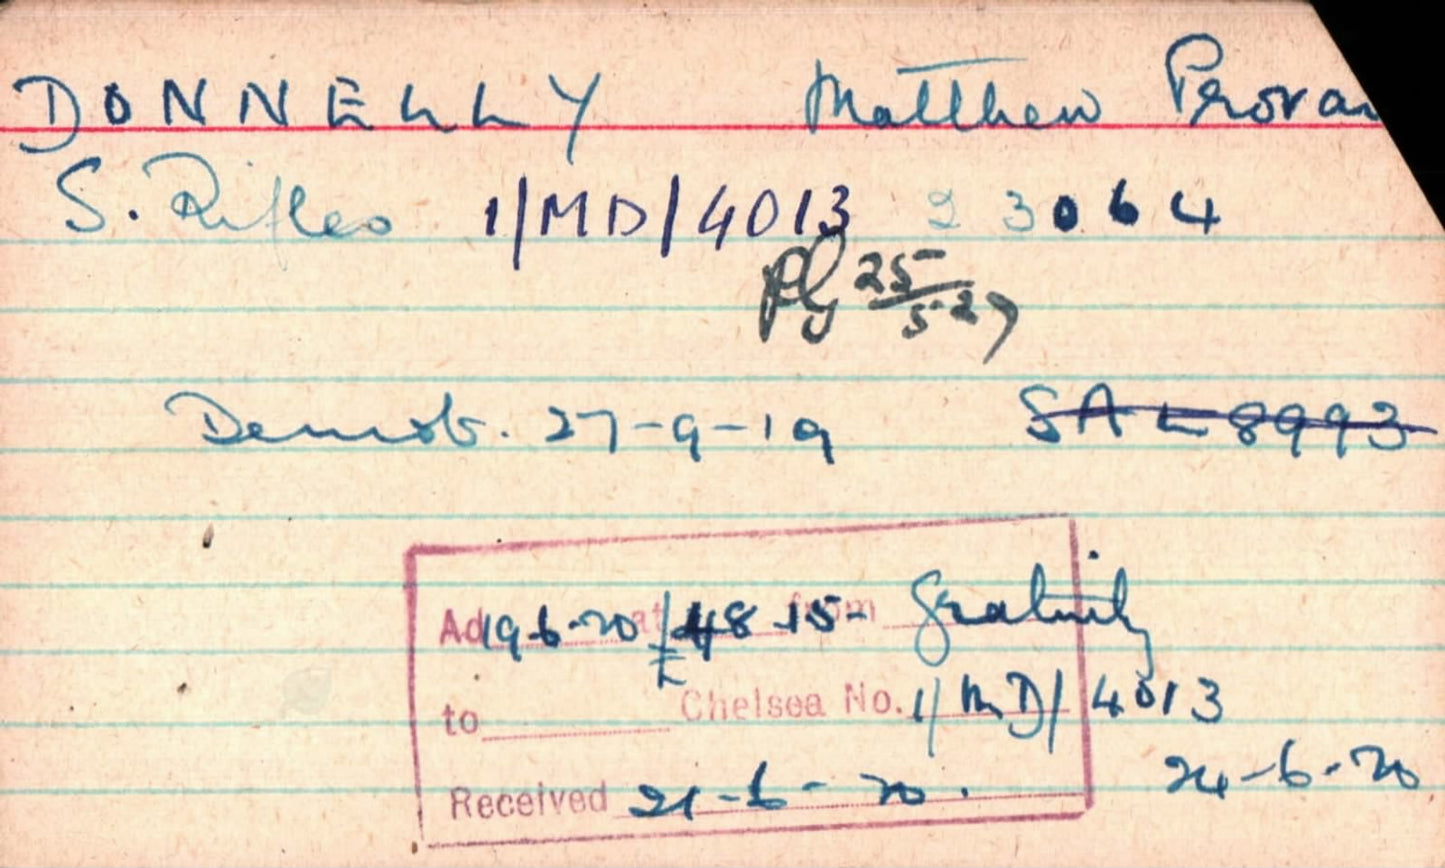 DONNELLY Matthew Provan
S. Rifles 1/MD/4013 23064
25/5 27
Demob. 27-9-19 SAL 8993
Ad 19-6-20 at £48-15- from Gratuity
to Chelsea No. 1/MD/4013
Received 21-6-20. 24-6-20